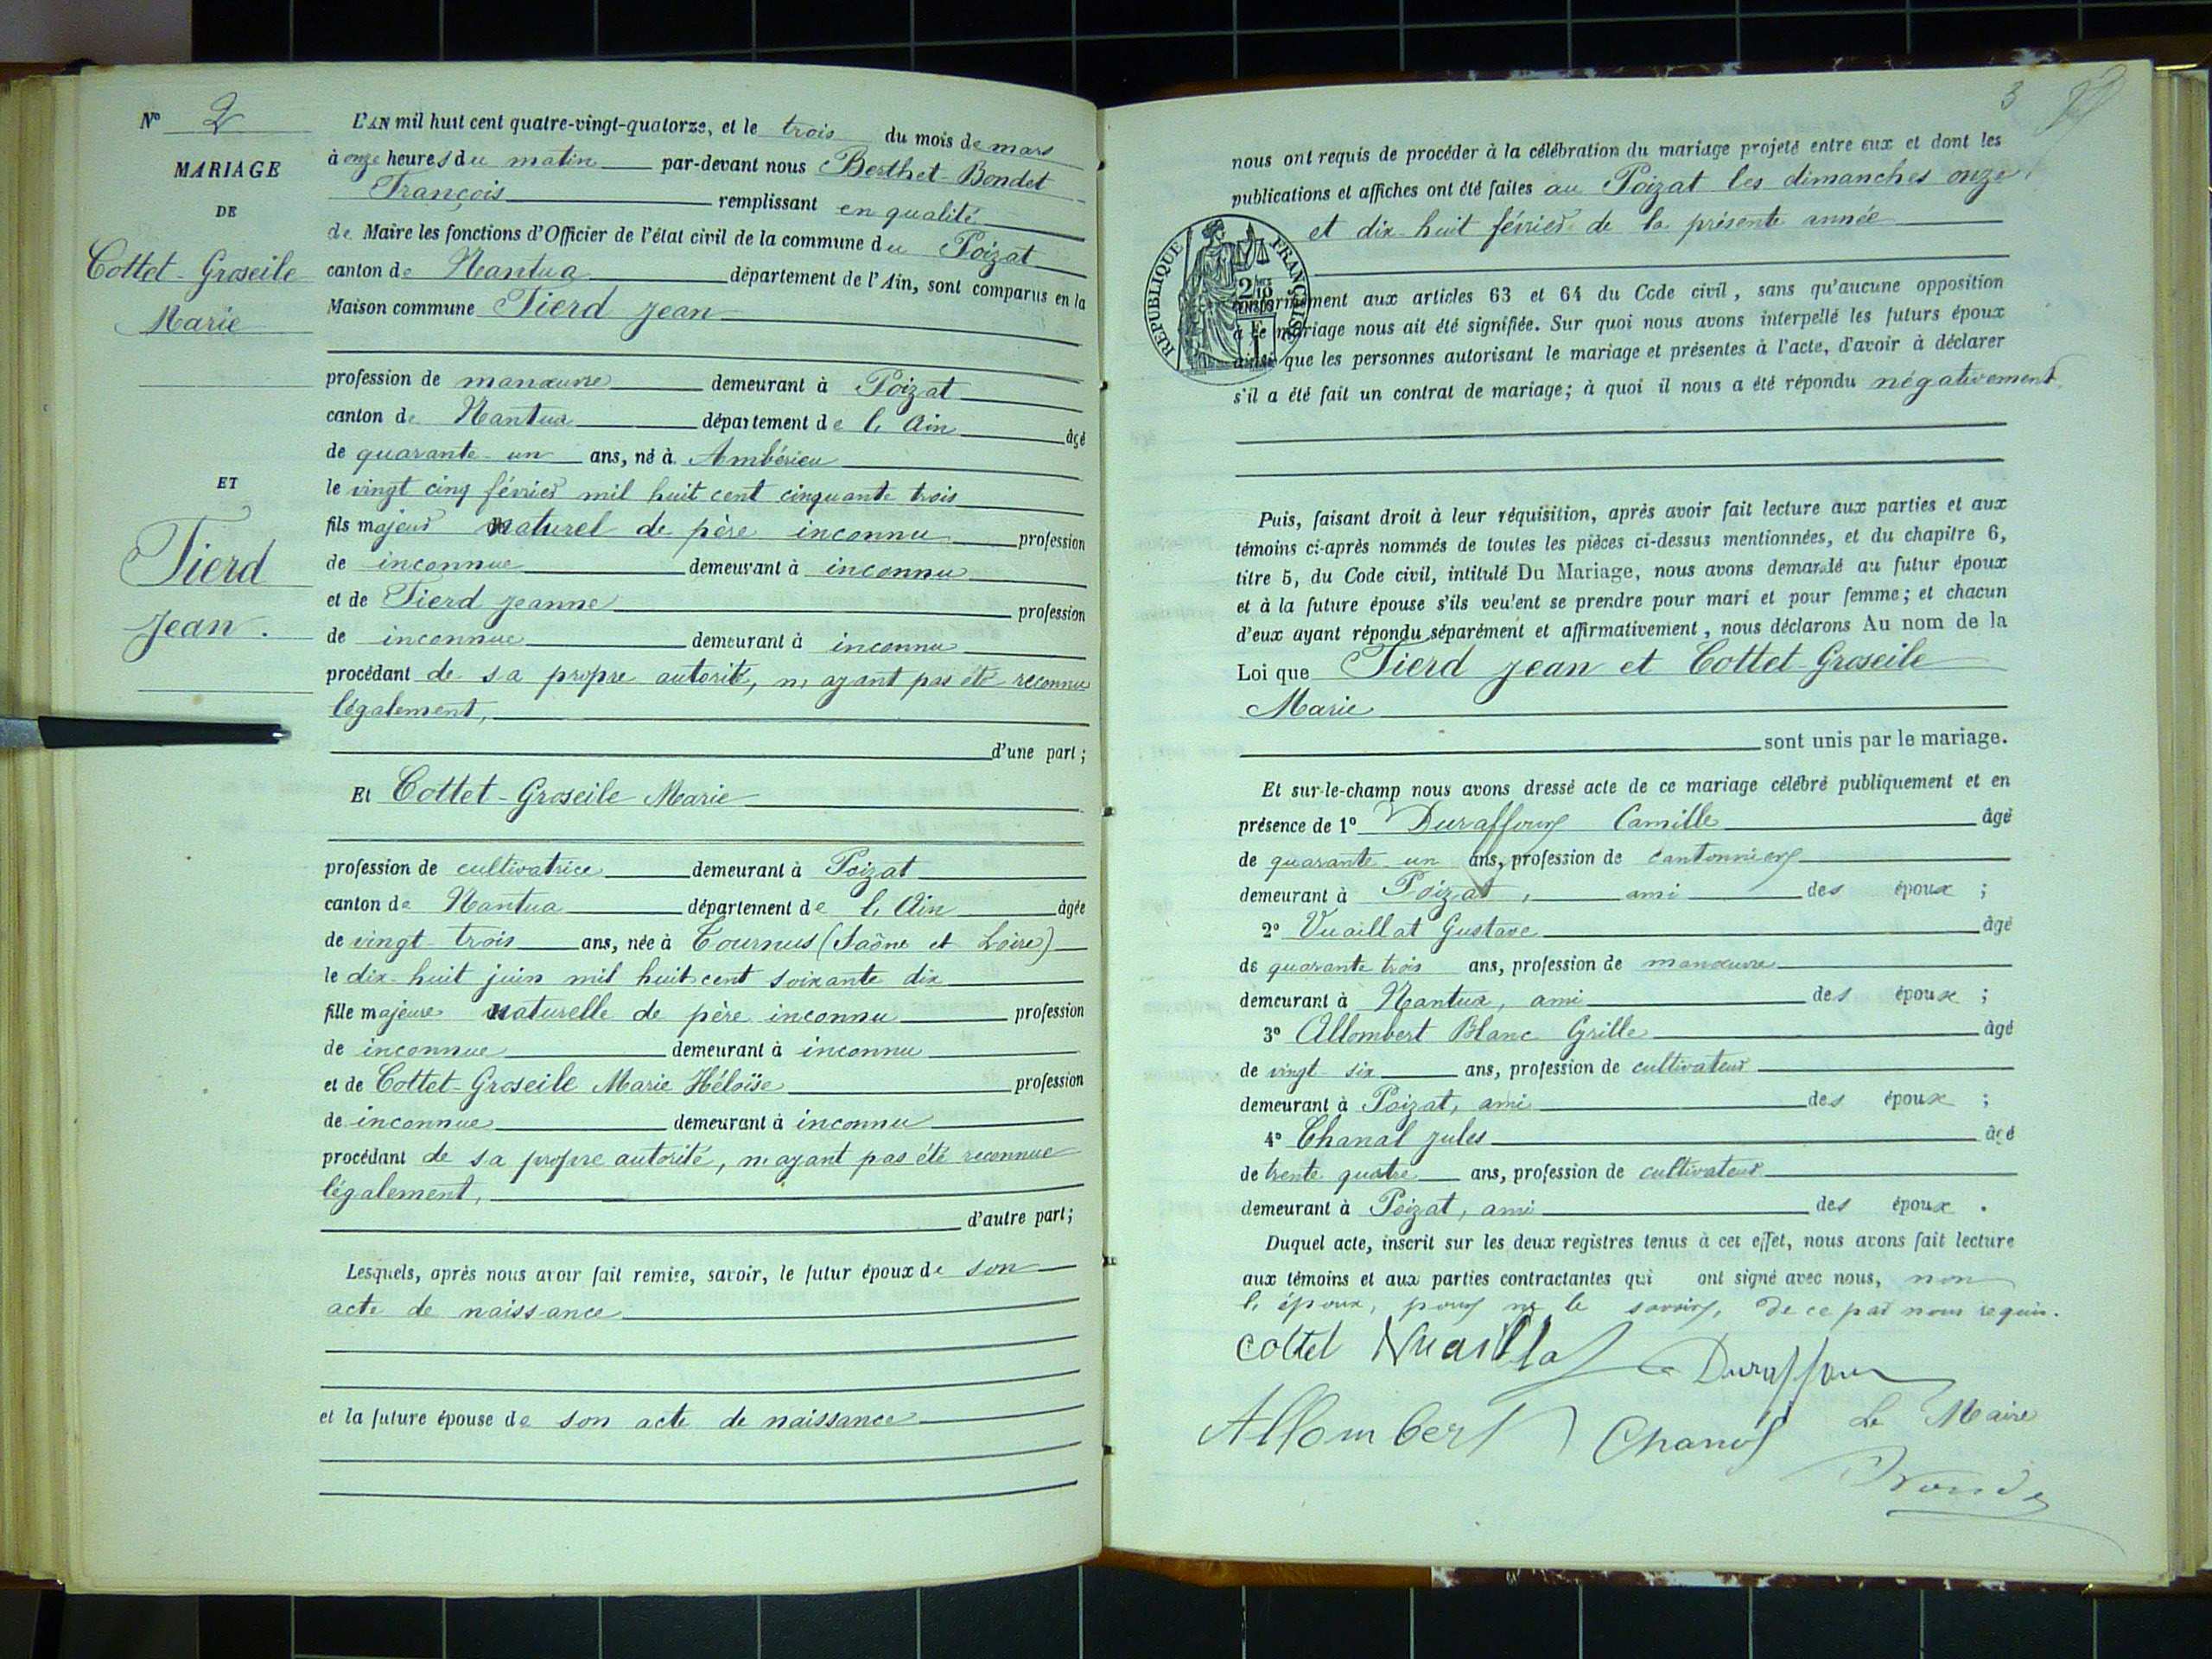 N° 2
MARIAGE
DE
Cottet-Groseile
Marie
ET
Tierd
Jean.
L'AN mil huit cent quatre-vingt-quatorze, et le trois du mois de mars
à onze heures du matin par-devant nous Berthet-Bondet
François remplissant en qualité
de Maire les fonctions d'Officier de l'état civil de la commune du Poizat
canton de Nantua département de l'Ain, sont comparus en la
Maison commune Tierd Jean
profession de manœuvre demeurant à Poizat
canton de Nantua département de l'Ain âgé
de quarante-un ans, né à Ambérieu
le vingt cinq février mil huit cent cinquante trois
fils majeur naturel de père inconnu profession
de inconnue demeurant à inconnu
et de Tierd Jeanne profession
de inconnue demeurant à inconnu
procédant de sa propre autorité, n'ayant pas été reconnu
légalement,
d'une part;
Et Cottet-Groseile Marie
profession de cultivatrice demeurant à Poizat
canton de Nantua département de l'Ain âgée
de vingt-trois ans, née à Tournus (Saône et Loire)
le dix-huit juin mil huit cent soixante dix
fille majeure naturelle de père inconnu profession
de inconnue demeurant à inconnu
et de Cottet-Groseile Marie Héloïse profession
de inconnue demeurant à inconnu
procédant de sa propre autorité, n'ayant pas été reconnue
légalement,
d'autre part;
Lesquels, après nous avoir fait remise, savoir, le futur époux de son
acte de naissance
et la future épouse de son acte de naissance
3
nous ont requis de procéder à la célébration du mariage projeté entre eux et dont les
publications et affiches ont été faites au Poizat les dimanches onze
et dix-huit février de la présente année
RÉPUBLIQUE FRANÇAISE
conformément aux articles 63 et 64 du Code civil, sans qu'aucune opposition
à ce mariage nous ait été signifiée. Sur quoi nous avons interpellé les futurs époux
ainsi que les personnes autorisant le mariage et présentes à l'acte, d'avoir à déclarer
s'il a été fait un contrat de mariage; à quoi il nous a été répondu négativement.
Puis, faisant droit à leur réquisition, après avoir fait lecture aux parties et aux
témoins ci-après nommés de toutes les pièces ci-dessus mentionnées, et du chapitre 6,
titre 5, du Code civil, intitulé Du Mariage, nous avons demandé au futur époux
et à la future épouse s'ils veulent se prendre pour mari et pour femme; et chacun
d'eux ayant répondu séparément et affirmativement, nous déclarons Au nom de la
Loi que Tierd Jean et Cottet-Groseile
Marie
sont unis par le mariage.
Et sur-le-champ nous avons dressé acte de ce mariage célébré publiquement et en
présence de 1° Duraffour Camille âgé
de quarante-un ans, profession de cantonnier
demeurant à Poizat, ami des époux ;
2° Vuaillat Gustave âgé
de quarante trois ans, profession de manœuvre
demeurant à Nantua, ami des époux ;
3° Allombert Blanc Grille âgé
de vingt-six ans, profession de cultivateur
demeurant à Poizat, ami des époux ;
4° Chanal Jules âgé
de trente quatre ans, profession de cultivateur
demeurant à Poizat, ami des époux .
Duquel acte, inscrit sur les deux registres tenus à cet effet, nous avons fait lecture
aux témoins et aux parties contractantes qui ont signé avec nous, non
l'époux, pour ne le savoir, de ce par nous requis.
Cottet Vuaillat Duraffour
Allombert Chanal Le Maire